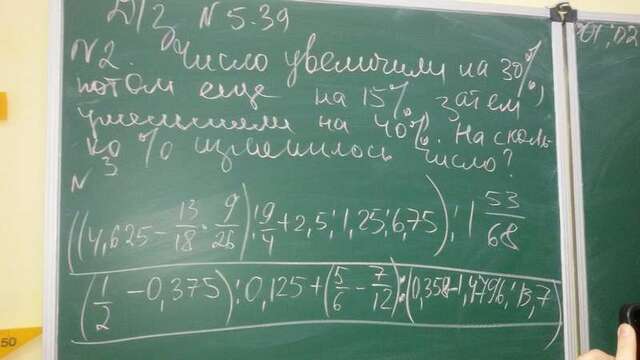 Д/з N 5.39
N2. Число увеличили на 30%,
потом еще на 15%, затем
уменьшили на 40%. На сколь
ко % изменилось число?
N 3
((4,625 - 13/18 · 9/26) : 9/4 + 2,5 : 1,25 : 6,75) : 1 53/68
(1/2 - 0,375) : 0,125 + (5/6 - 7/12) : (0,358 - 1,4796 : 13,7)
50